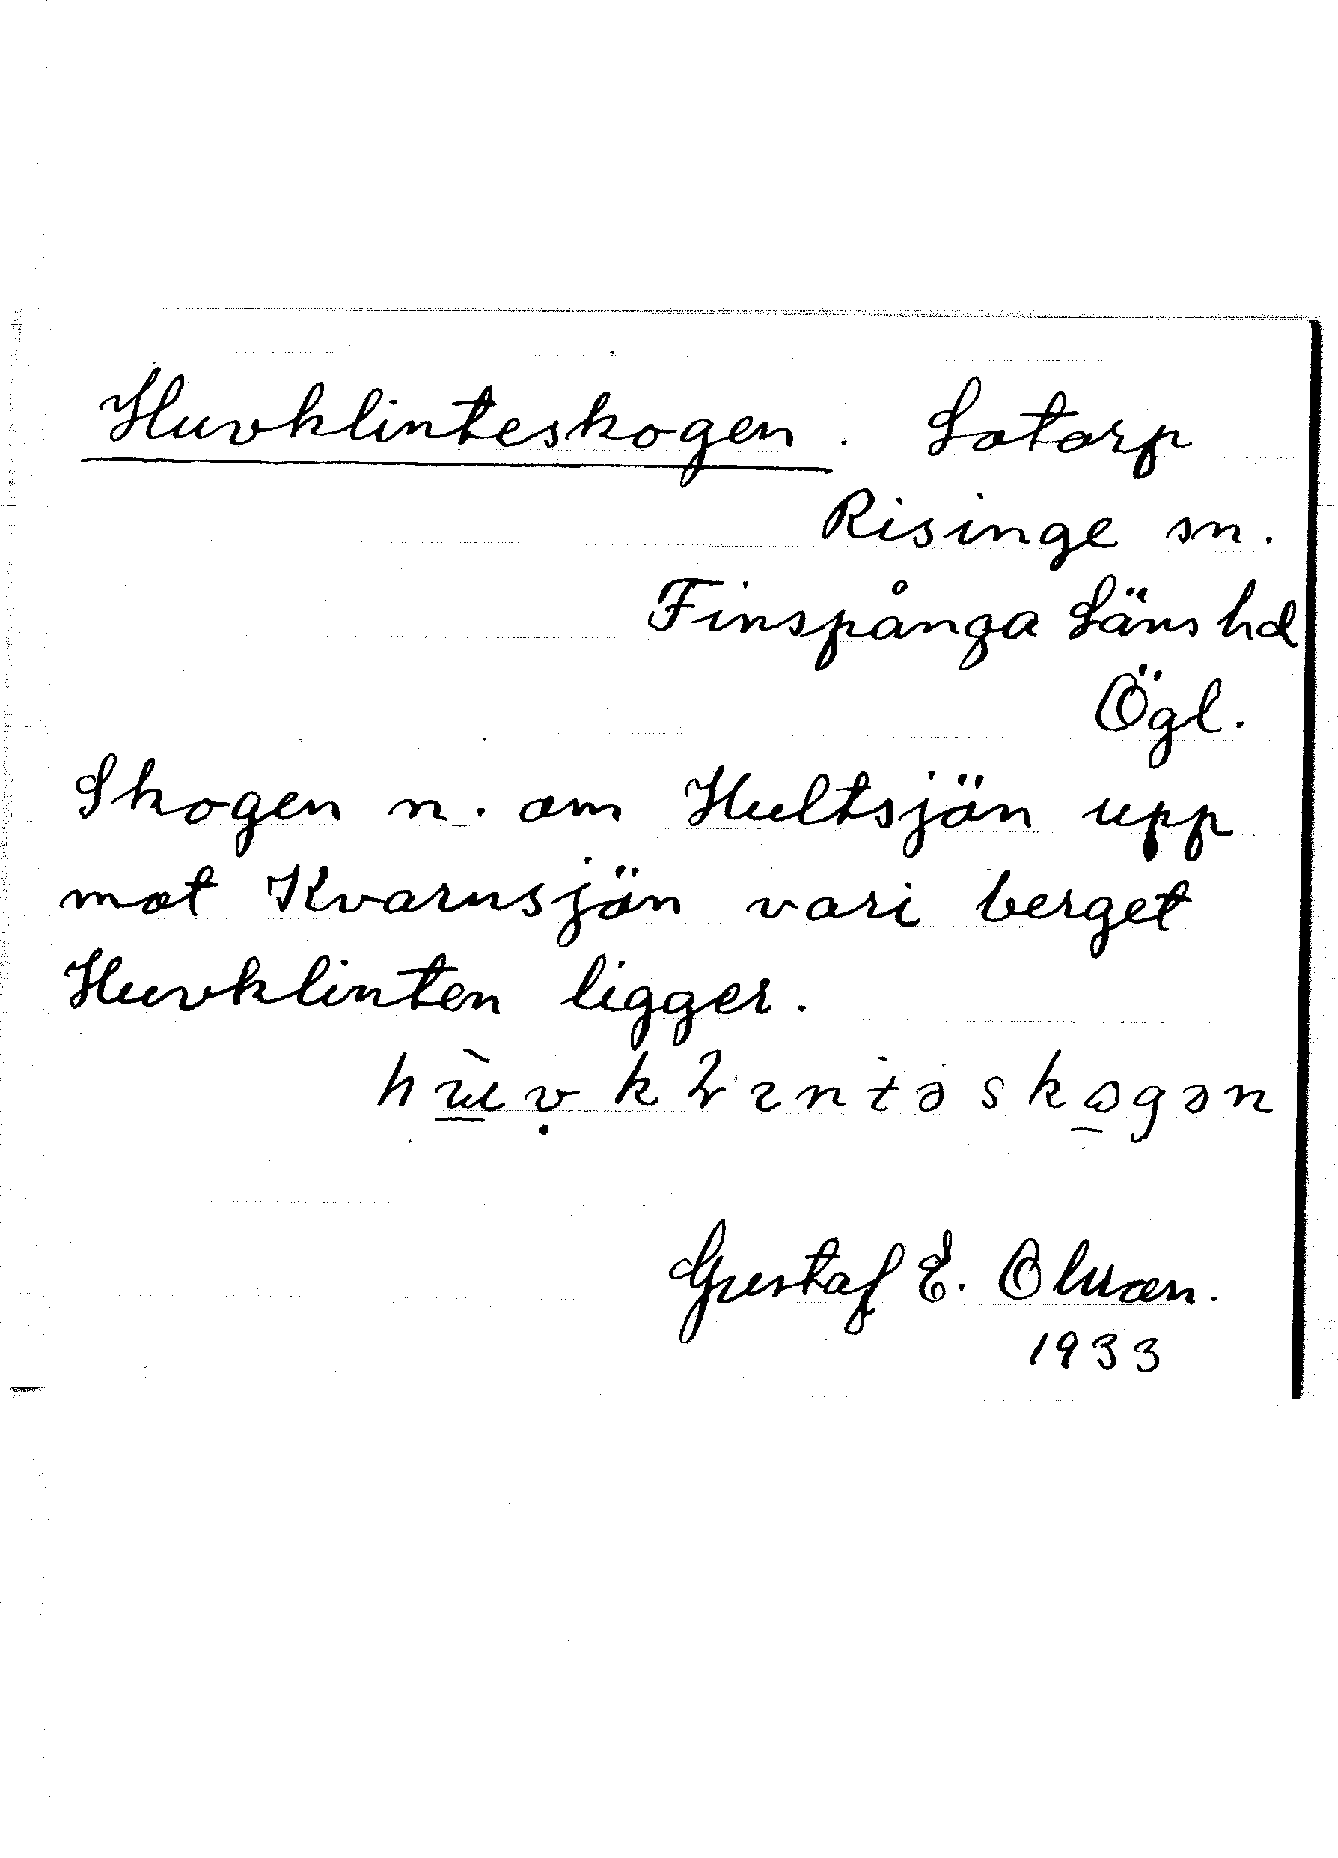 Huvklinteskogen. Lotorp
Risinge sn.
Finspånga Läns hd
Ögl.
Skogen n. om Hultsjön upp
mot Kvarnsjön vari berget
Huvklinten ligger.
Gustaf E. Olsson.
1933